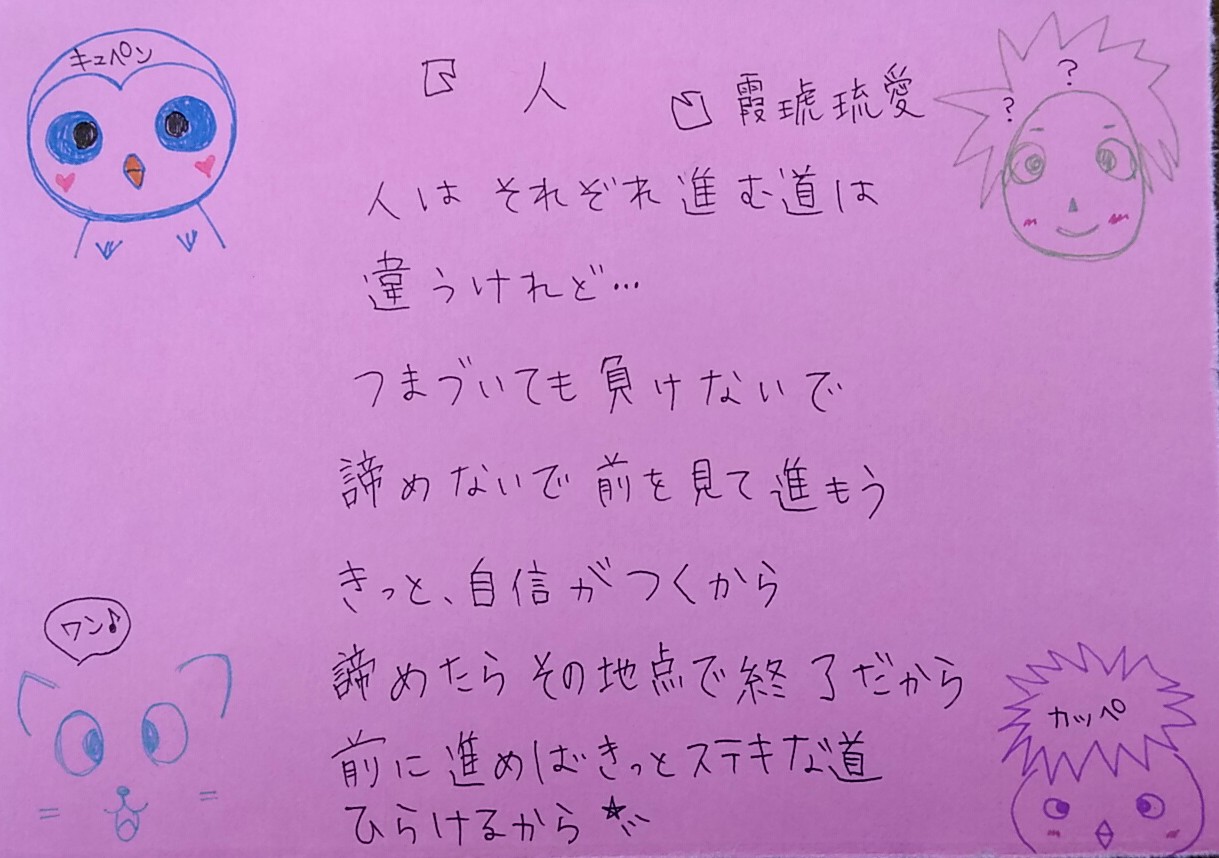 キュペン
人
霞琥琉愛
? ?
人は それぞれ 進む道は
違うけれど…
つまづいても 負けないで
諦めないで 前を見て 進もう
きっと、自信がつくから
諦めたら その地点で終了だから
前に進めばきっとステキな道
ひらけるから
ワン♪
カッペ